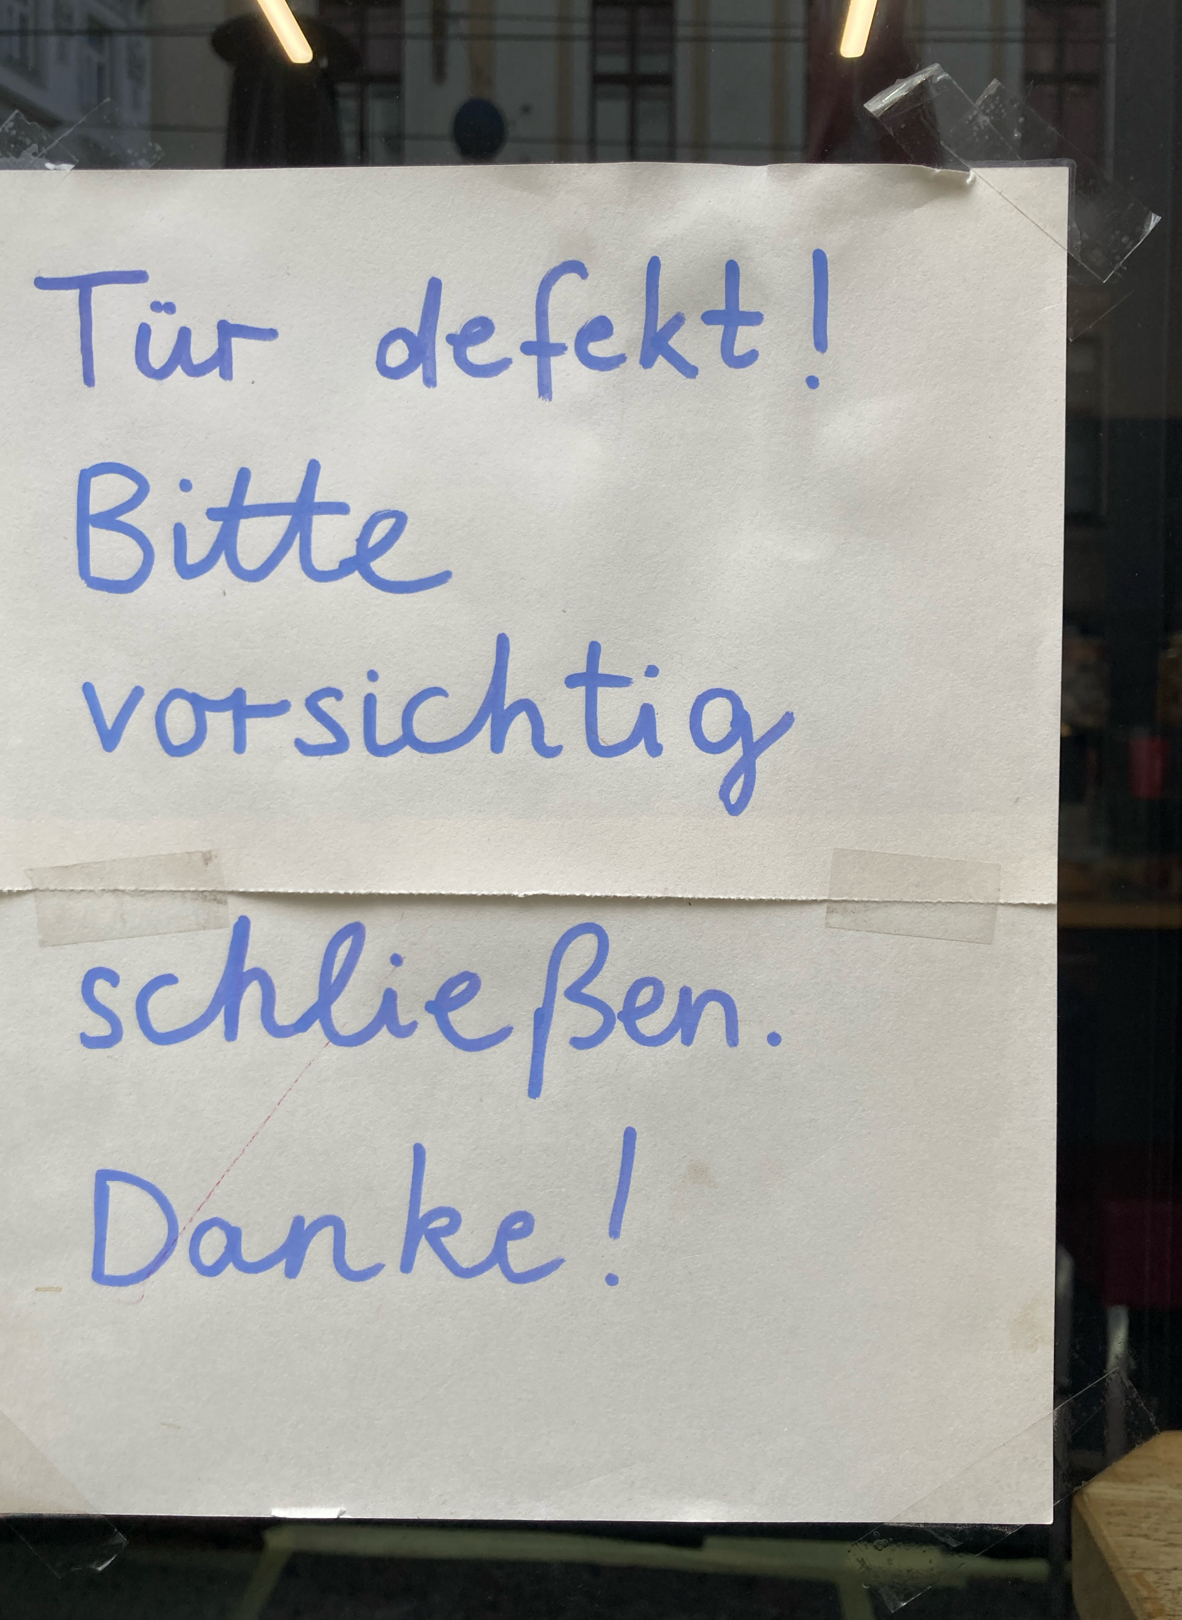 Tür defekt!
Bitte
vorsichtig
schließen.
Danke!